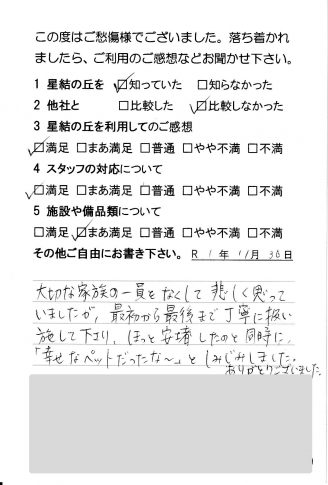 この度はご愁傷様でございました。落ち着かれ
ましたら、ご利用のご感想などお聞かせ下さい。
1 星結の丘を ☑知っていた □知らなかった
2 他社と □比較した ☑比較しなかった
3 星結の丘を利用してのご感想
☑満足 □まあ満足 □普通 □やや不満 □不満
4 スタッフの対応について
☑満足 □まあ満足 □普通 □やや不満 □不満
5 施設や備品類について
□満足 ☑まあ満足 □普通 □やや不満 □不満
その他ご自由にお書き下さい。R 1 年 11月 30日
大切な家族の一員をなくして悲しく思って
いましたが、最初から最後まで丁寧に扱い
施して下さり、ほっと安堵したのと同時に、
「幸せなペットだったな〜」としみじみしました。
ありがとうございました